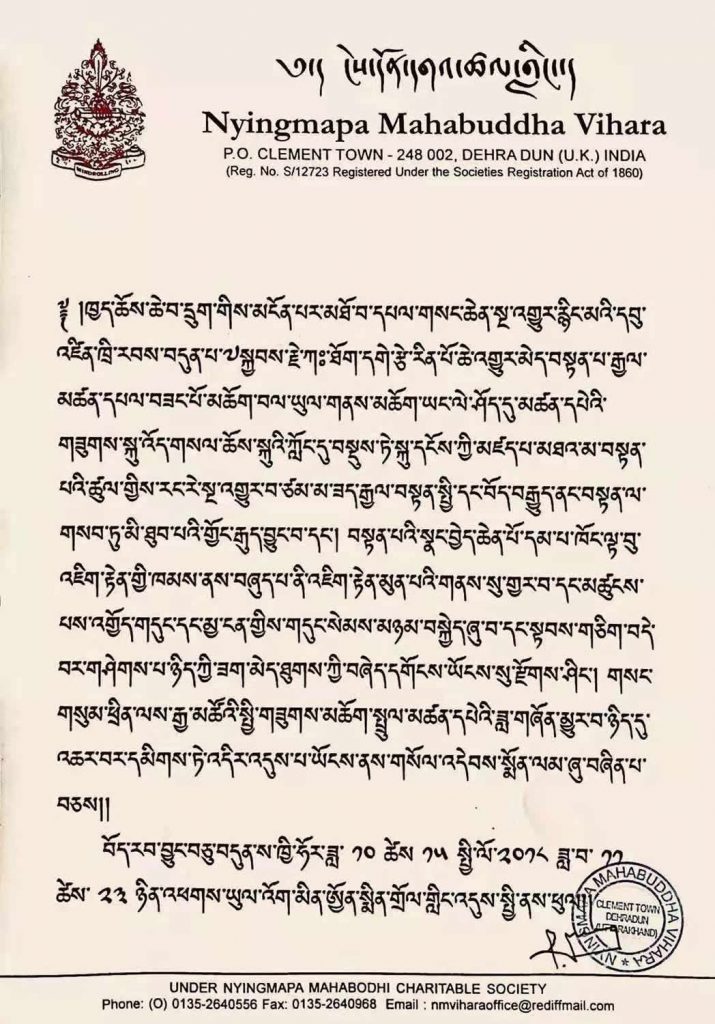 MINDROLLING
Nyingmapa Mahabuddha Vihara
P.O. CLEMENT TOWN - 248 002, DEHRA DUN (U.K.) INDIA
(Reg. No. S/12723 Registered Under the Societies Registration Act of 1860)
༄༅། །ཁྱད་ཆོས་ཆེ་བ་དྲུག་གིས་མངོན་པར་མཐོ་བ་དཔལ་གསང་ཆེན་སྔ་འགྱུར་རྙིང་མའི་དབུ་
འཛིན་ཁྲི་རབས་བདུན་པ་༧སྐྱབས་རྗེ་ཀཿཐོག་དགེ་རྩེ་རིན་པོ་ཆེ་འགྱུར་མེད་བསྟན་པ་རྒྱལ་
མཚན་དཔལ་བཟང་པོ་མཆོག་བལ་ཡུལ་གནས་མཆོག་ཡང་ལེ་ཤོད་དུ་མཚན་དཔེའི་
གཟུགས་སྐུ་འོད་གསལ་ཆོས་སྐུའི་ཀློང་དུ་བསྡུས་ཏེ་སྐུ་དངོས་ཀྱི་མཛད་པ་མཐའ་མ་བསྟན་
པའི་ཚུལ་གྱིས་རང་རེ་སྔ་འགྱུར་བ་ཙམ་མ་ཟད་རྒྱལ་བསྟན་སྤྱི་དང་བོད་བརྒྱུད་ནང་བསྟན་ལ་
གསབ་ཏུ་མི་ཐུབ་པའི་གྱོང་རྒུད་བྱུང་བ་དང་། བསྟན་པའི་སྣང་བྱེད་ཆེན་པོ་དམ་པ་ཁོང་ལྟ་བུ་
འཇིག་རྟེན་གྱི་ཁམས་ནས་བཞུད་པ་ནི་འཇིག་རྟེན་མུན་པའི་གནས་སུ་གྱར་བ་དང་མཚུངས་
པས་འགྱོད་གདུང་དང་མྱ་ངན་གྱིས་གདུང་སེམས་མཉམ་བསྐྱེད་ཞུ་བ་དང་སྟབས་གཅིག་བདེ་
བར་གཤེགས་པ་ཉིད་ཀྱི་ཟག་མེད་ཐུགས་ཀྱི་བཞེད་དགོངས་ཡོངས་སུ་རྫོགས་ཤིང་། གསང་
གསུམ་ཕྲིན་ལས་རྒྱ་མཚོའི་སྤྱི་གཟུགས་མཆོག་སྤྲུལ་མཚན་དཔེའི་ཟླ་གཞོན་མྱུར་བ་ཉིད་དུ་
འཆར་བར་དམིགས་ཏེ་འདིར་འདུས་པ་ཡོངས་ནས་གསོལ་འདེབས་སྨོན་ལམ་ཞུ་བཞིན་པ་
བཅས།།
བོད་རབ་བྱུང་བཅུ་བདུན་ས་ཁྱི་ཧོར་ཟླ་ ༡༠ ཚེས་ ༡༥ སྤྱི་ལོ་༢༠༡༨ ཟླ་བ་ ༡༡
ཚེས་ ༢༣ ཉིན་འཕགས་ཡུལ་འོག་མིན་ཨྱོན་སྨིན་གྲོལ་གླིང་འདུས་སྤྱི་ནས་ཕུལ།།
NYINGMAPA MAHABUDDHA VIHARA
CLEMENT TOWN
DEHRADUN
(UTTARAKHAND)
UNDER NYINGMAPA MAHABODHI CHARITABLE SOCIETY
Phone: (O) 0135-2640556 Fax: 0135-2640968 Email : nmviharaoffice@rediffmail.com